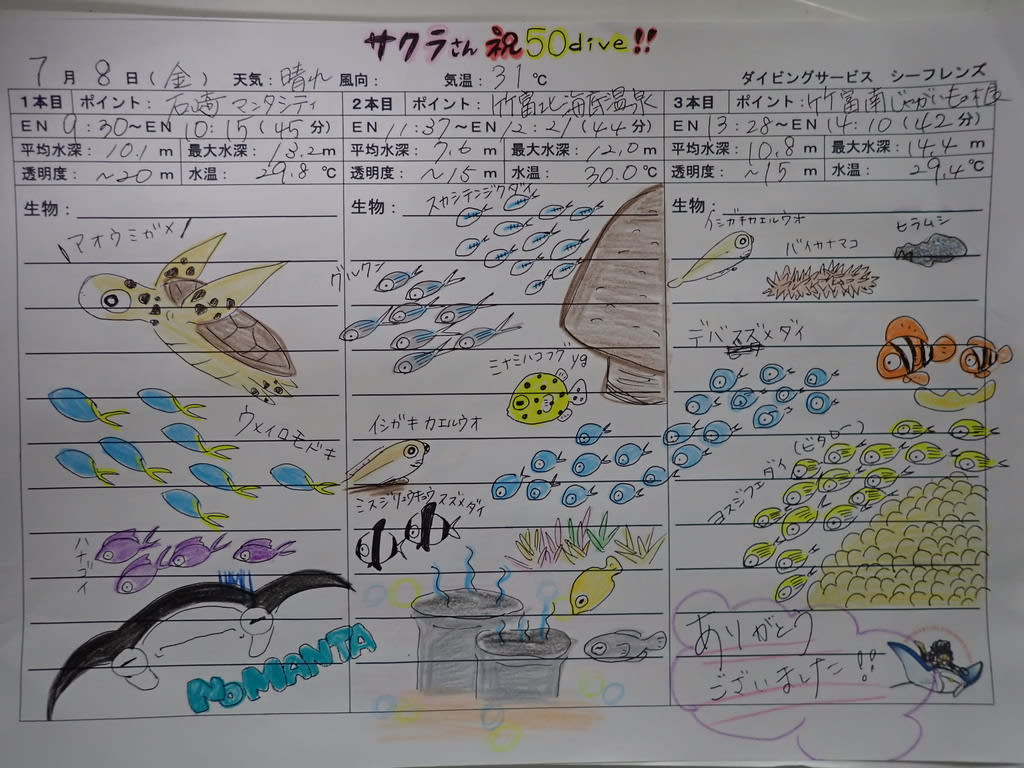 サクラさん 祝 50dive!!
7月 8日(金) 天気:晴れ 風向: 気温:31℃ ダイビングサービス シーフレンズ
1本目 ポイント:石崎マンタシティ
EN 9:30～EN 10:15(45分)
平均水深:10.1m 最大水深:13.2m
透明度:~20m 水温:29.8℃
生物:
アオウミガメ
ウメイロモドキ
ハナゴイ
NO MANTA
2本目 ポイント:竹富北海底温泉
EN 11:37～EN 12:21(44分)
平均水深:7.6m 最大水深:12.0m
透明度:~15m 水温:30.0℃
生物:
スカシテンジクダイ
グルクン
ミナミハコフグyg
イシガキカエルウオ
ミスジリュウキュウスズメダイ
3本目 ポイント:竹富南じゃがいもの根
EN 13:28～EN 14:10(42分)
平均水深:10.8m 最大水深:14.4m
透明度:~15m 水温:29.4℃
生物:
イシガキカエルウオ
ヒラムシ
バイカナマコ
デバスズメダイ
ヨスジフエダイ
(ビタロー)
ありがとう
ございました!!